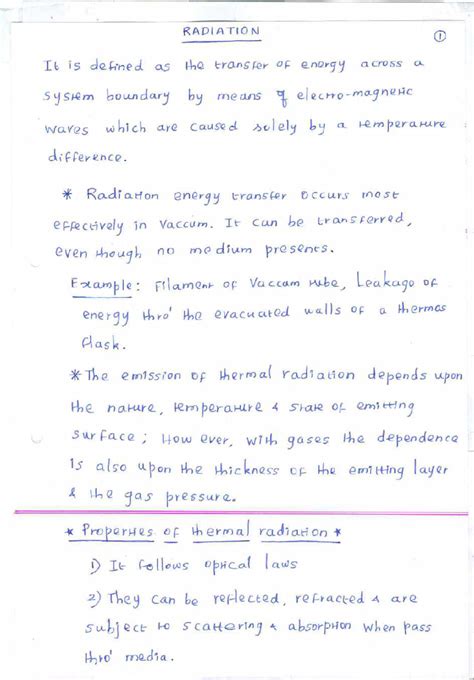 RADIATION
1
It is defined as the transfer of energy across a
system boundary by means of electro-magnetic
waves which are caused solely by a temperature
difference.
* Radiation energy transfer occurs most
effectively in Vaccum. It can be transferred,
even though no medium presents.
Example: Filament of Vaccam tube, Leakago of
energy thro' the evacuated walls of a thermos
flask.
* The emission of thermal radiation depends upon
the nature, temperature & state of emitting
surface; How ever, with gases the dependence
is also upon the thickness of the emitting layer
& the gas pressure.
* Properties of thermal radiation *
1) It follows optical laws
2) They can be reflected, refracted & are
subject to scattering & absorption when pass
thro' media.